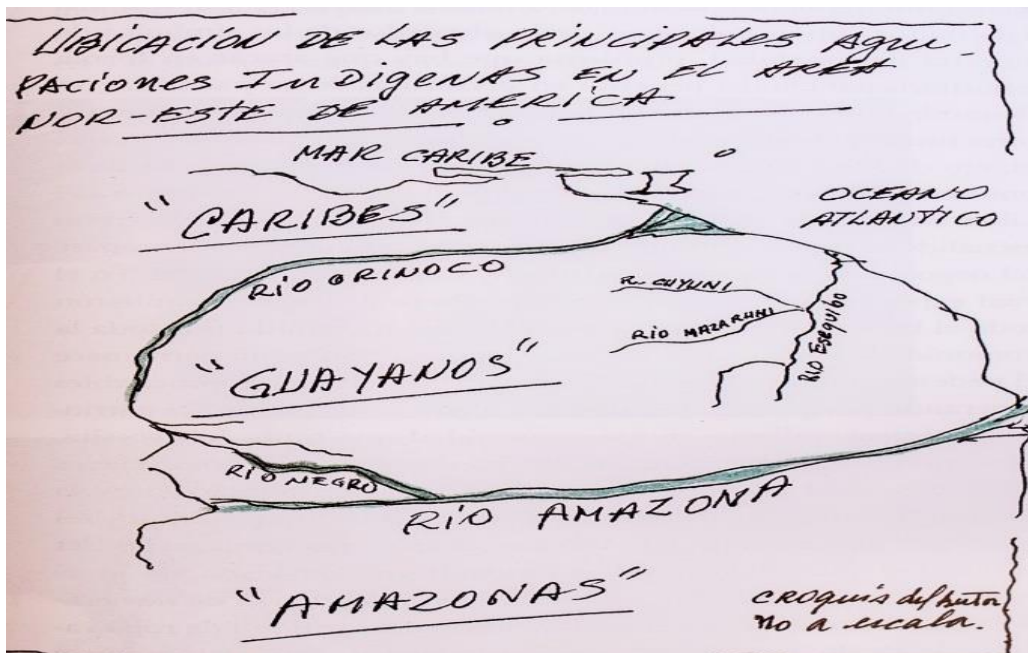 UBICACIÓN DE LAS PRINCIPALES AGRU-
PACIONES INDIGENAS EN EL AREA
NOR-ESTE DE AMÉRICA
MAR CARIBE
"CARIBES"
OCEANO
ATLANTICO
RÍO ORINOCO
R. CUYUNI
RÍO MAZARUNI
RÍO ESEQUIBO
"GUAYANOS"
RÍO NEGRO
RÍO AMAZONA
"AMAZONAS"
CROQUIS del Autor
no a escala.